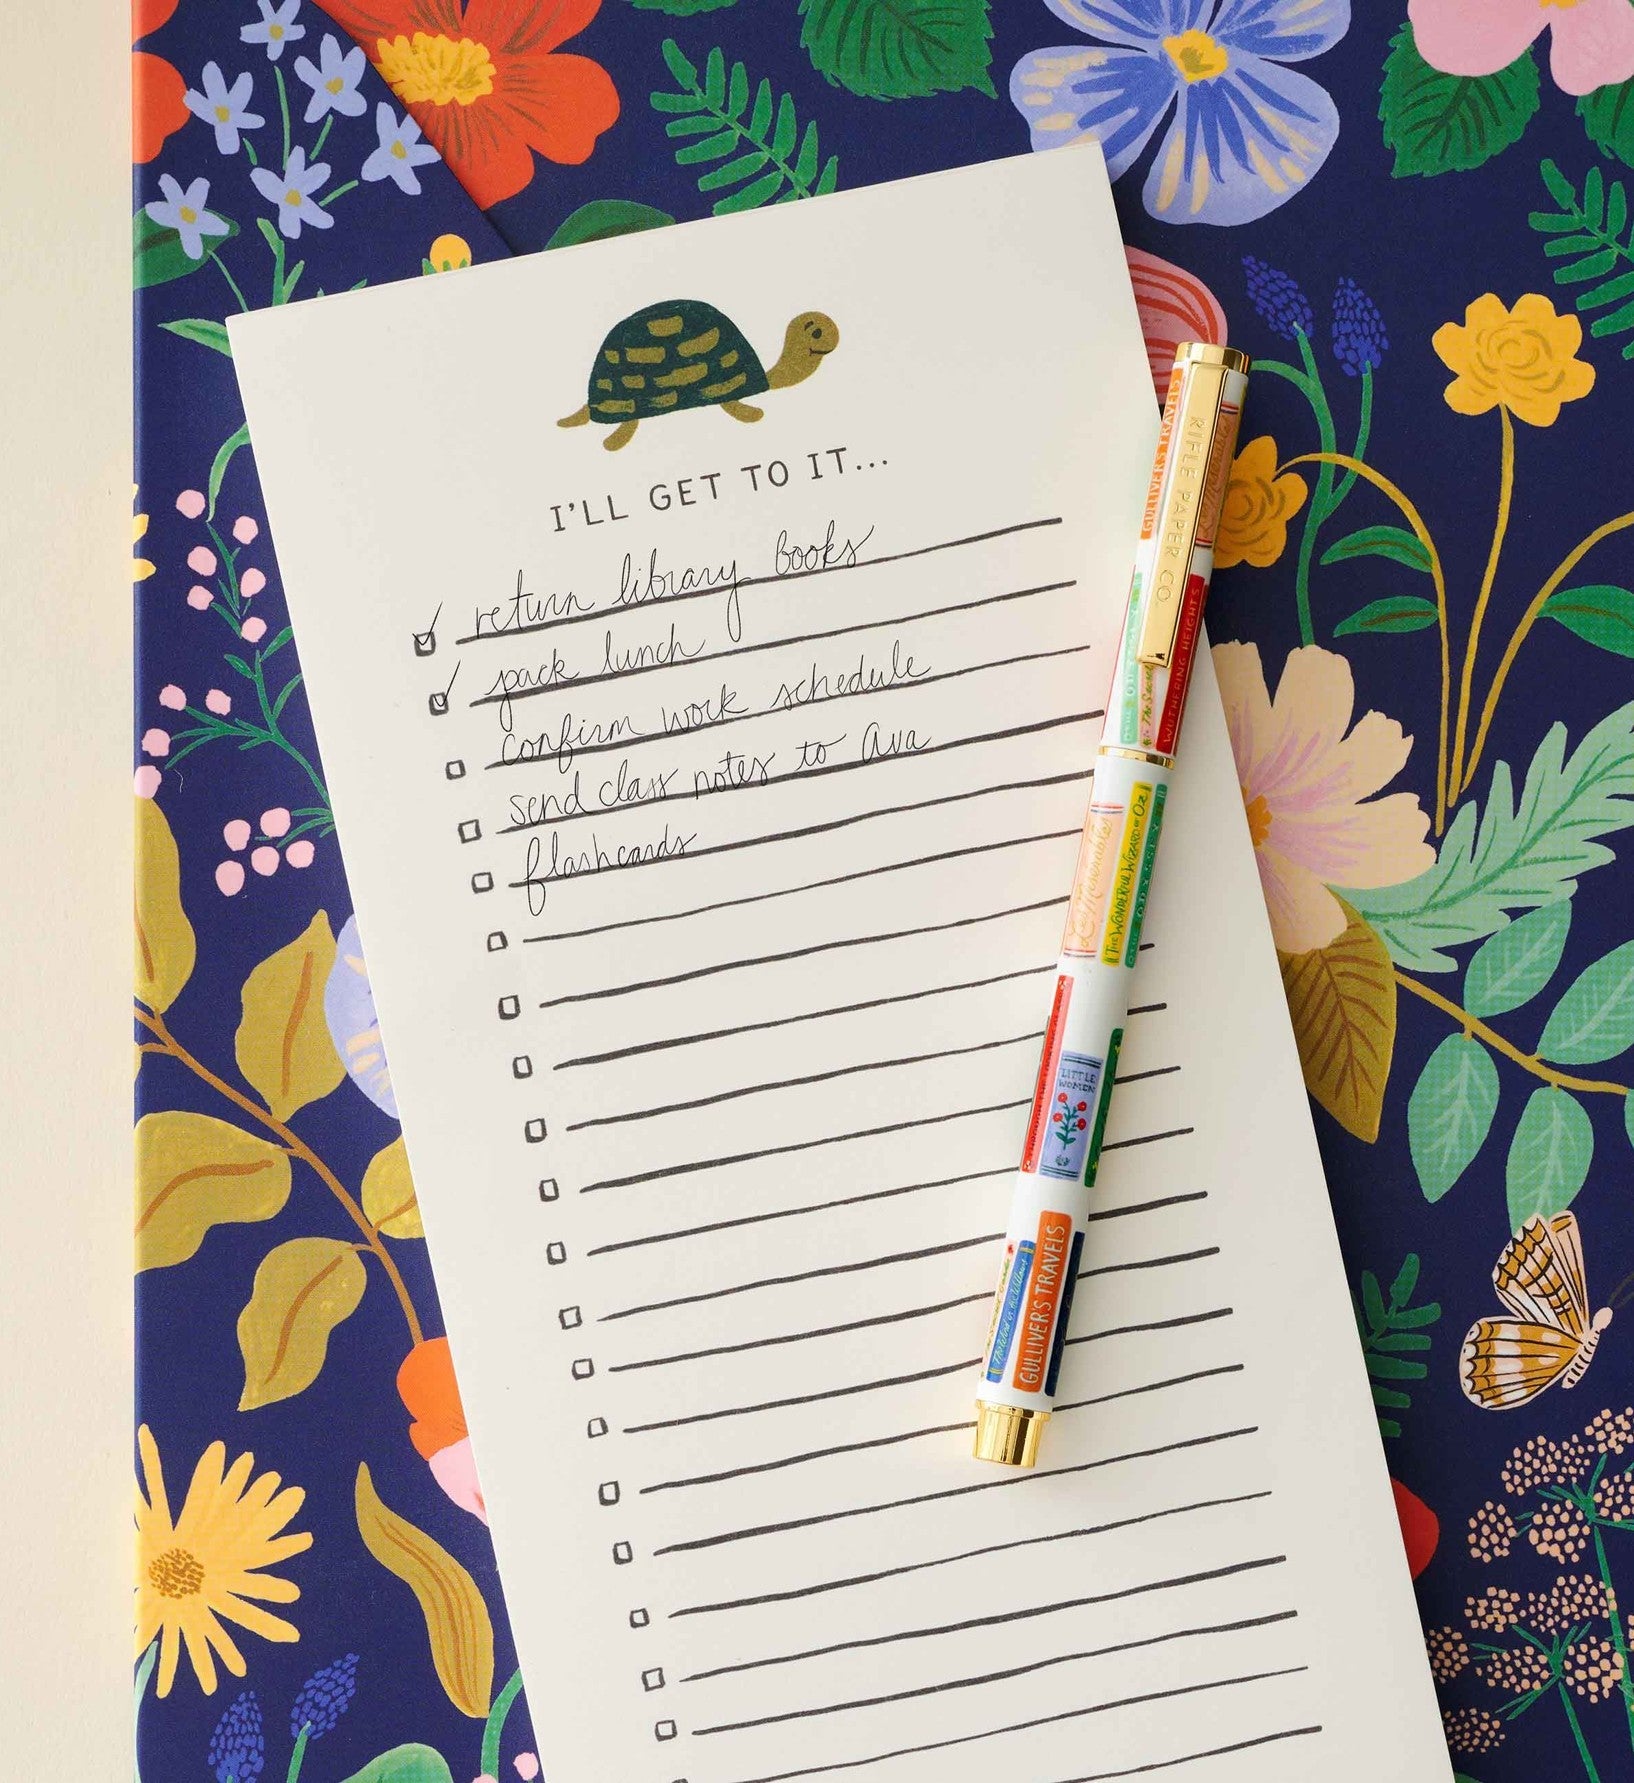 I'LL GET TO IT...
return library books
pack lunch
confirm work schedule
send class notes to Ava
flashcards
GULLIVER'S TRAVELS
RIFLE PAPER CO.
WUTHERING HEIGHTS
Les Misérables
THE WONDERFUL WIZARD OF OZ
ODYSSEY
LITTLE WOMEN
The Wind in the Willows
GULLIVER'S TRAVELS